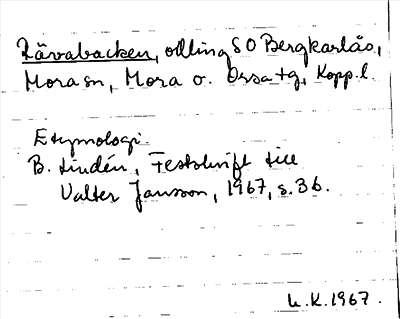 Rävabacken, odling SO Bergkarlås,
Mora sn, Mora o. Orsa tg, Kopp. l.
Etymologi.
B. Lindén, Festskrift till
Valter Jansson, 1967, s. 36.
L.K. 1967.